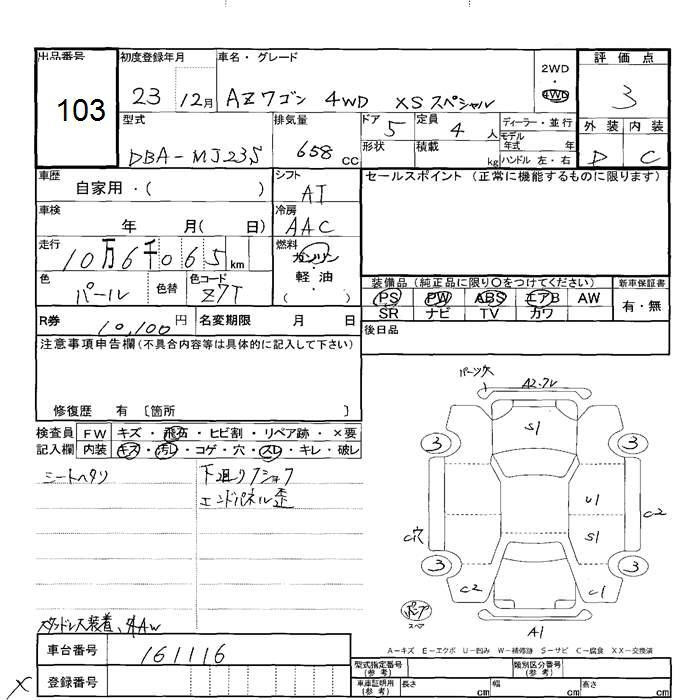 出品番号 初度登録年月 車名・グレード 2WD 評価点
103 23 12月 AZワゴン 4WD XSスペシャル 4WD 3
型式 排気量 ドア 5 定員 4人 ディーラー・並行 外装 内装
DBA-MJ23S 658cc 形状 積載 kg モデル年式 年 D C
ハンドル 左・右
車歴 自家用・( ) シフト AT セールスポイント (正常に機能するものに限ります)
車検 年 月( 日) 冷房 AAC
走行 10万6千065km 燃料 ガソリン・軽油・( )
色 パール 色替 色コード Z7T 装備品 (純正品に限り○をつけてください) 新車保証書
PS PW ABS エアB AW 有・無
SR ナビ TV カワ
R券 10,100円 名変期限 月 日 後日品
注意事項申告欄(不具合内容等は具体的に記入して下さい)
パーツ欠
修復歴 有 [箇所 ]
検査員 FW キズ・飛石・ヒビ割・リペア跡・×要
記入欄 内装 キズ・汚レ・コゲ・穴・スレ・キレ・破レ
シートヘタリ 下廻りフショク
エンドパネル歪
S1
3 3
U1
C2
S1
C穴
3 3
C2 C1
A1
スタッドレス装着、外AW
A-キズ E-エクボ U-凹み W-補修跡 S-サビ C-腐食 XX-交換済
車台番号 161116
登録番号
型式指定番号(参考) 類別区分番号(参考)
車庫証明用(参考) 長さ cm 幅 cm 高さ cm
×